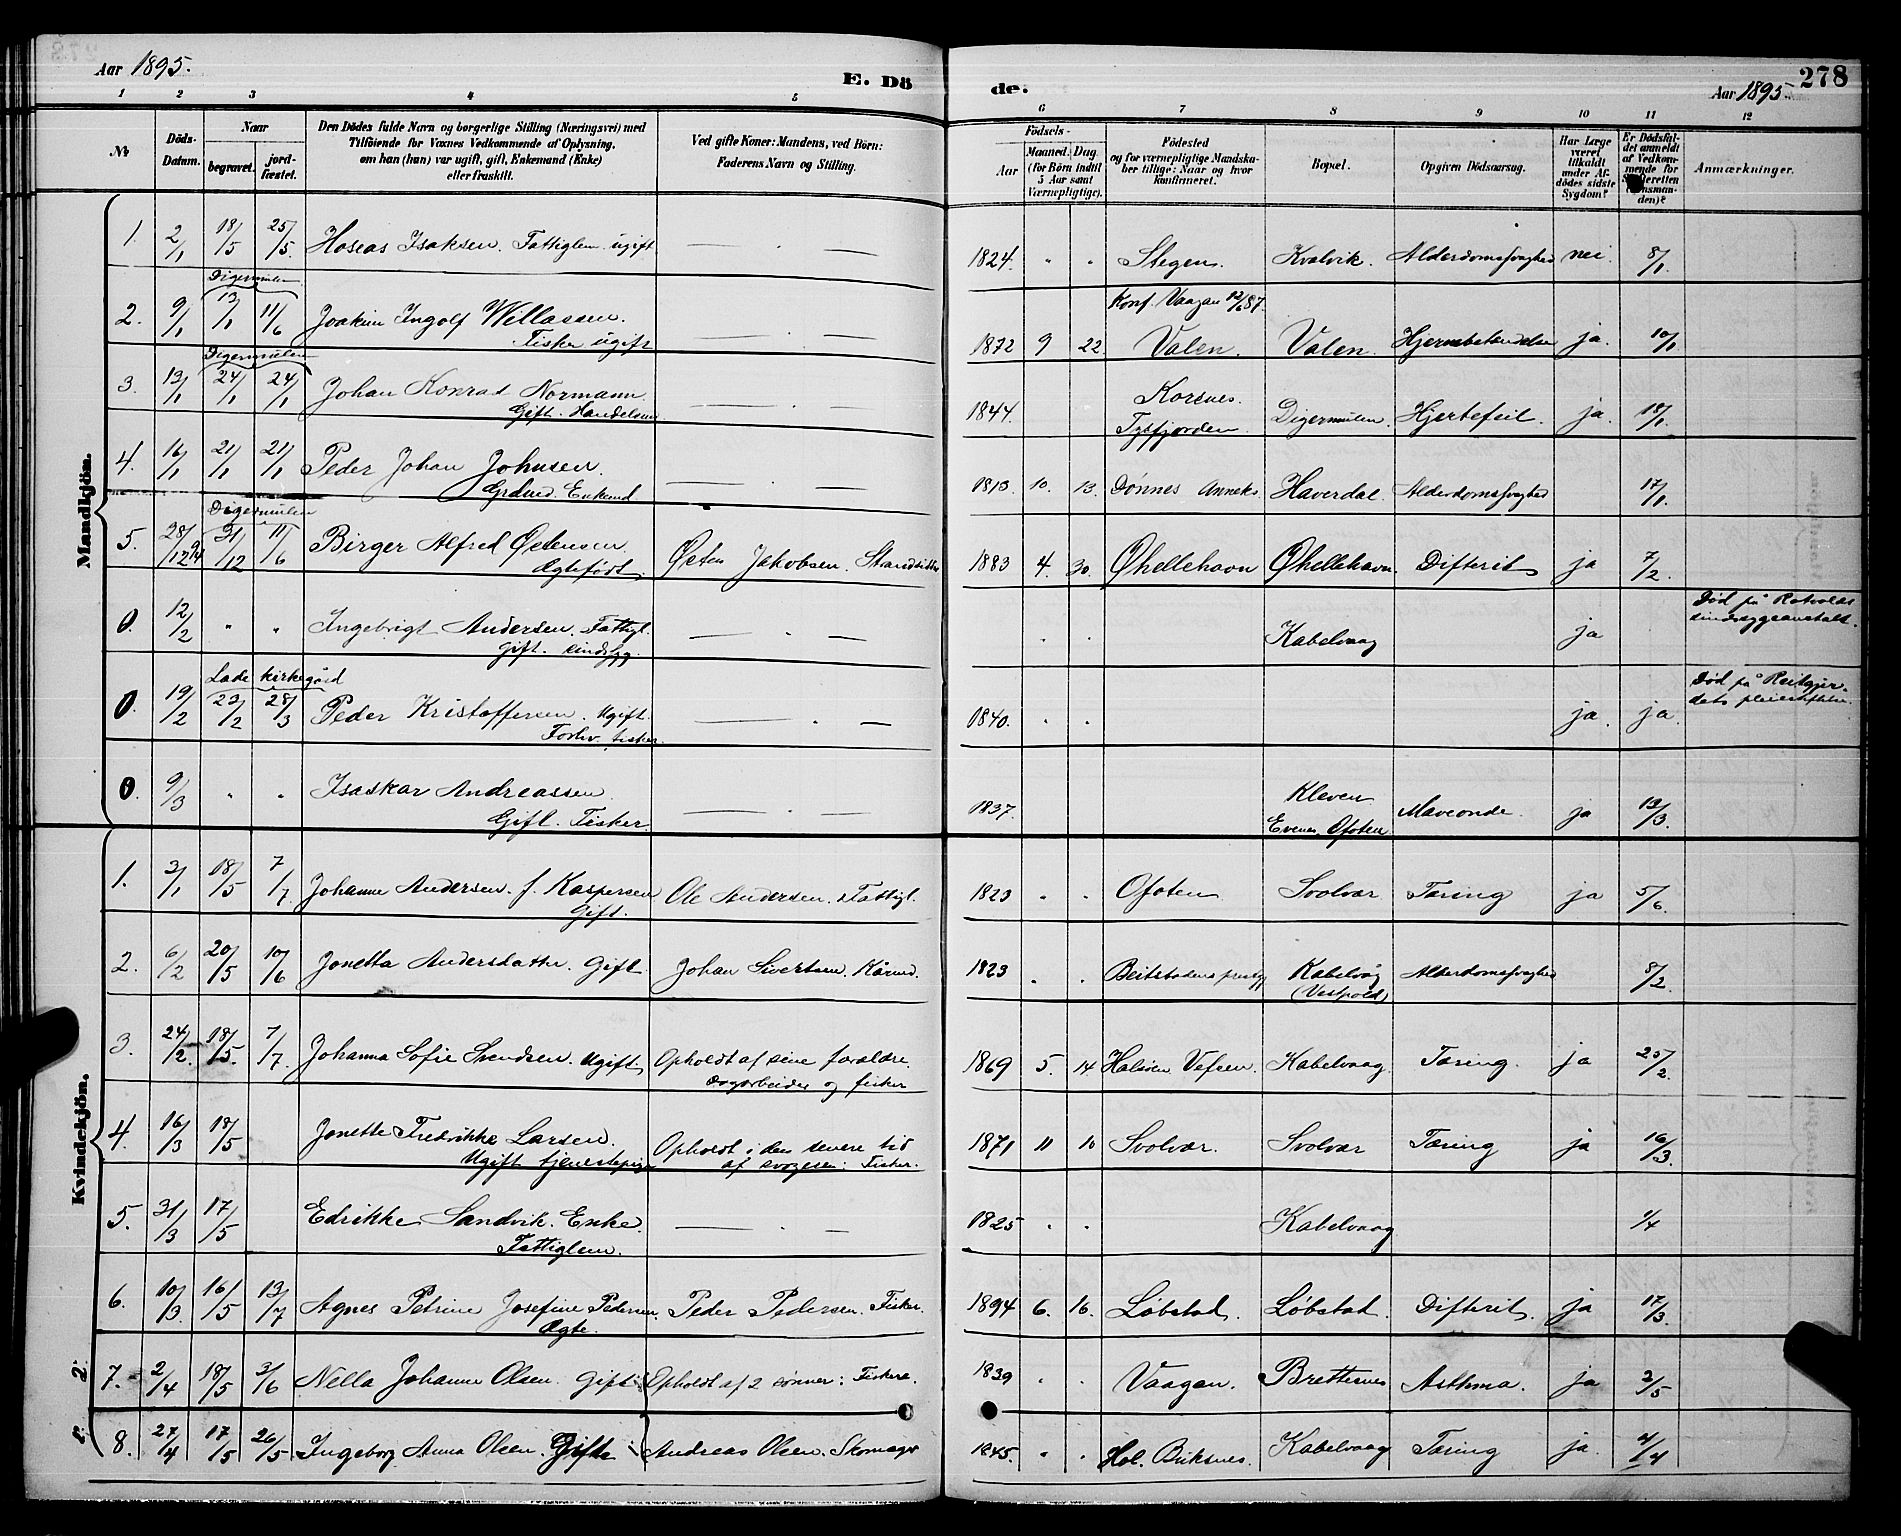 Aar 1895.
E. Dö
de.
Aar 1895.
278
1 2 3 4 5 6 7 8 9 10 11 12
№
Döds-Datum.
Naar
begravet.
jord-fæstet.
Den Dödes fulde Navn og borgerlige Stilling (Næringsvei) med
Tilföiende for Voxnes Vedkommende af Oplysning,
om han (hun) var ugift, gift, Enkemand (Enke)
eller fraskilt.
Ved gifte Koner: Mandens, ved Börn:
Faderens Navn og Stilling.
Födsels-
Aar
Maaned. Dag.
(for Börn indtil
5 Aar samt
Værnepligtige).
Födested
og for værnepligtige Mandska-
ber tillige: Naar og hvor
konfirmeret.
Bopæl.
Opgiven Dödsaarsag.
Har Læge
været
tilkaldt
under Af-
dödes sidste
Sygdom?
Er Dödsfal-
det anmeldt
af Vedkom-
mende for
Skifteretten
(Lensman-
den)?
Anmærkninger.
Mandkjön.
1. 2/1 18/5 25/5 Hoseas Isaksen. Fattiglem. ugift — . — 1824. " " Stegen. Kvalvik. Alderdomssvaghed nei. 8/1
Digermulen
Konf. Vaagan 12/6 87.
2. 9/1 13/1 11/6 Joakim Ingolf Willassen.
Fisker ugift — . — 1872 9 22 Valen. Valen. Hjernebetændelse ja. 10/1
Digermulen
3. 13/1 24/1 24/1 Johan Konrad Normann.
Gift. Handelsm — . — 1844. Korsnes.
Tysfjorden Digermulen. Hjertefeil. ja. 18/1
4. 16/1 21/1 21/1 Peder Johan Johnsen.
Grdmd. Enkemd — . — 1813. 10. 13. Dønnes Anneks Haverdal. Alderdomssvaghed 17/1
Digermulen
5. 28/12 94 31/12 11/6 Birger Alfred Østensen.
Ægtefødt. Østen Jakobsen. Strandsidder 1883 4. 30. Øhellehavn Øhellehavn. Difterit ja 7/2
0. 12/2 " " Ingebrigt Andersen. Fattigl.
Gift. sindssyg. — . — " " Kabelvaag ja Død på Rotvolds
sindssygeanstalt.
Lade kirkegård
0. 19/2 23/2 28/3 Peder Kristoffersen. Ugift.
Forhv. fisker. — . — 1840. " " ja. ja. Død på Reitgjer-
dets pleiestiftelse.
0. 9/3 " " Isaskar Andreassen.
Gift. Fisker. — . — 1837. Kleven
Evenes Ofoten Maveonde. ja 13/3
Kvindekjön.
1. 3/1 18/5 7/7. Johanne Andersen. f. Kaspersen
Gift. Ole Andersen. Fattigl. 1823 " " Ofoten Svolvær Tæring ja 5/6.
2. 6/2 20/5 10/6 Jonetta Andersdatter. Gift. Johan Sivertsen. Kårmd. 1823 " " Beitstadens prstgj Kabelvåg
(Vestpold) Alderdomssvaghed 8/2.
3. 24/2. 18/5. 7/7. Johanna Sofie Svendsen. Ugift. Opholdt af sine forældre.
dagarbeider og fisker 1869 5. 14 Halsøen Vefsen. Kabelvaag Tæring. ja 25/2
4. 16/3 18/5 Jonette Fredrikke Larsen.
Ugift tjenestepige Opholdt i den senere tid
af svogeren: Fisker. 1871 11 10 Svolvær. Svolvær Tæring ja 16/3.
5. 31/3 17/5 Edrikke Sandvik. Enke
Fattiglem. — . — 1825 " " Kabelvaag 1/4
6. 10/3 16/5 13/7 Agnes Petrine Josefine Pedersen.
Ægte. Peder Pedersen. Fisker. 1894 6. 16. Løbstad. Løbstad. Difterit. ja 17/3.
7. 2/4 18/5 3/6 Nella Johanne Olsen. Gift. Opholdt af 2 sønner: Fiskere. 1839 " " Vaagan. Brettesnes Asthma. ja 2/5
8. 27/4 17/5 26/5 Ingeborg Anna Olsen. Gift Andreas Olsen. Skomager 1845. " " Hol. Buksnes. Kabelvaag Tæring ja.